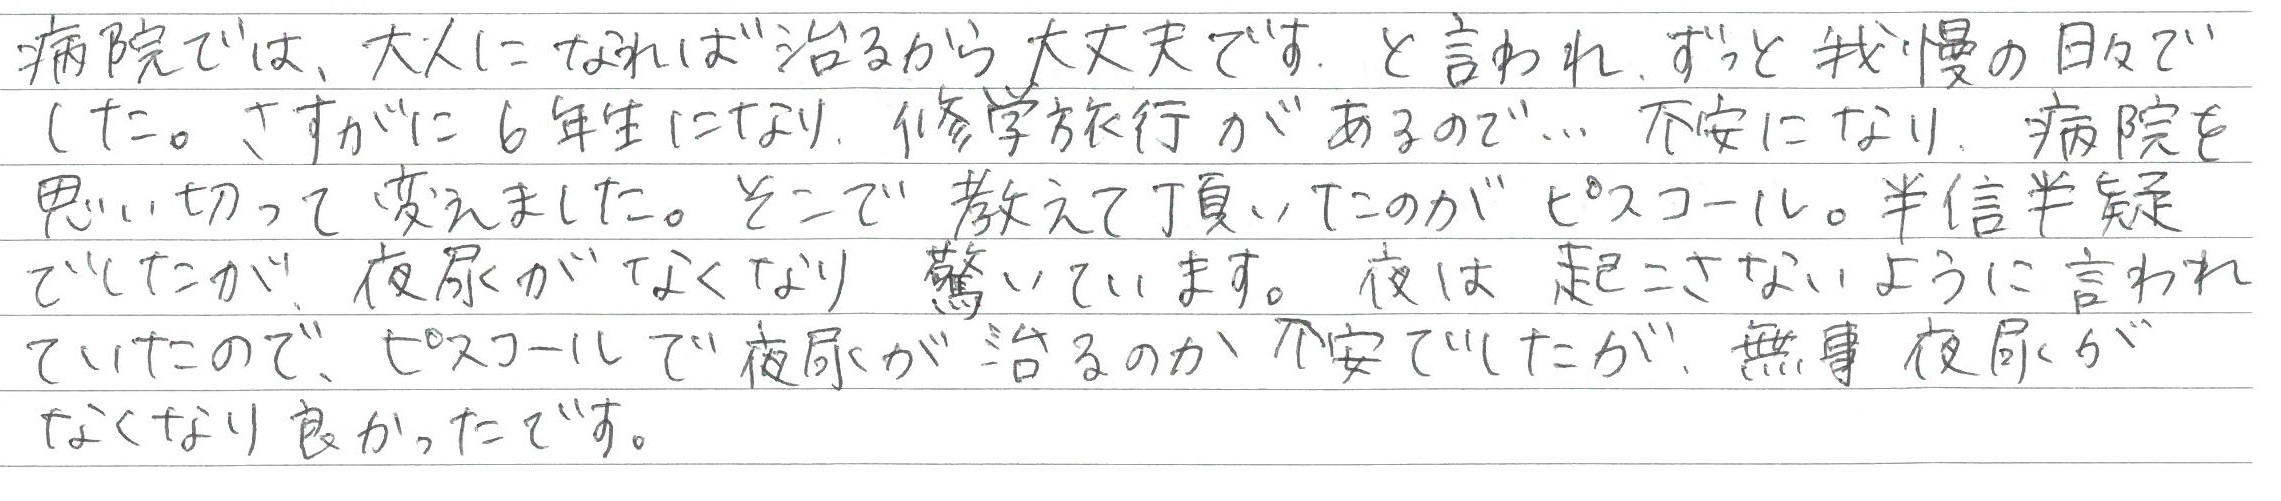 病院では、大人になれば治るから大丈夫です.と言われ、ずっと我慢の日々で
した。さすがに6年生になり、修学旅行があるので…不安になり、病院を
思い切って変えました。そこで教えて頂いたのがピスコール。半信半疑
でしたが、夜尿がなくなり驚いています。夜は起こさないように言われ
ていたので、ピスコールで夜尿が治るのか不安でしたが、無事夜尿が
なくなり良かったです。